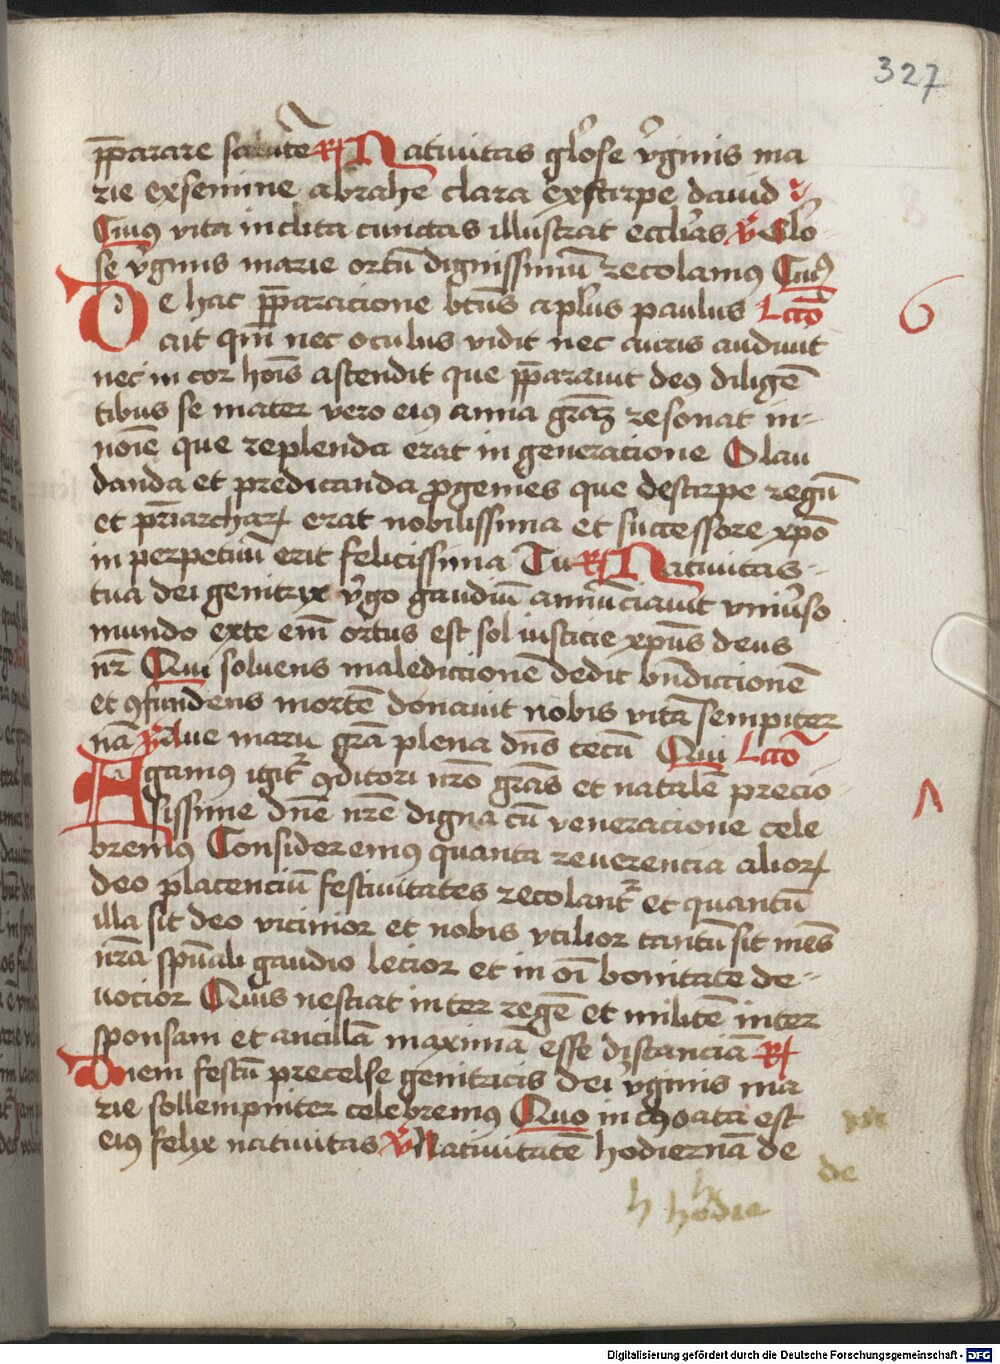 327
pp̄arare salutē ℟ Natiuitas glo͛se v͛ginis ma
rie exsemine abrahe clara exstirpe dauid
Cui9 vita inclita cunctas illustrat eccl͛ias ℣ Glo
se v͛ginis marie ortū dignissimū recolam9 Cui9
De hac pp̄aracione bt̄us ap̄lus paulus Lcō
6
ait qm̄ nec oculus vidit nec auris audiuit
nec in cor hoīs ascendit que pp̄arauit de9 diligē
tibus se mater vero ei9 anna grāꝫ resonat in-
noīe que replenda erat in generacione O lau
danda et predicanda ꝓgenies que destirpe regū
et pr̄iarchaꝝ erat nobilissima et successore xp̄o
in perpetuū erit felicissima Tu ℟ Natiuitas-
tua dei genitrix v͛go gaudiū annūciauit vniu͛so
mundo exte em̄ ortus est sol iusticie xp̄us deus
nr̄ Qui soluens malediccionē dedit bn̄diccionē
et ꝯfundens mortē donauit nobis vitā sempiter
nā ℣ Aue maria grā plena dn̄s tecū Qui Lcō
Agam9 igit͛ ꝯditori nr̄o grās et natalē precio
sissime dn̄e nr̄e digna cū veneracione cele
brem9 Considerem9 quanta reuerencia alioꝝ
deo placenciū festiuitates recolant͛ et quantū
illa sit deo vicinior et nobis vtilior tantū sit mēs
nr̄a spūali gaudio lecior et in oī bonitate de-
uocior Quis nesciat inter regē et militē inter
sponsam et ancillā maximā esse distanciā ℟
Diem festū precelse genitricis dei v͛ginis ma
rie sollempniter celebrem9 Quo inchoata est
ei9 felix natiuitas ℣ Natiuitatē hodiernā de
de
h h hodie
Digitalisierung gefördert durch die Deutsche Forschungsgemeinschaft - DFG